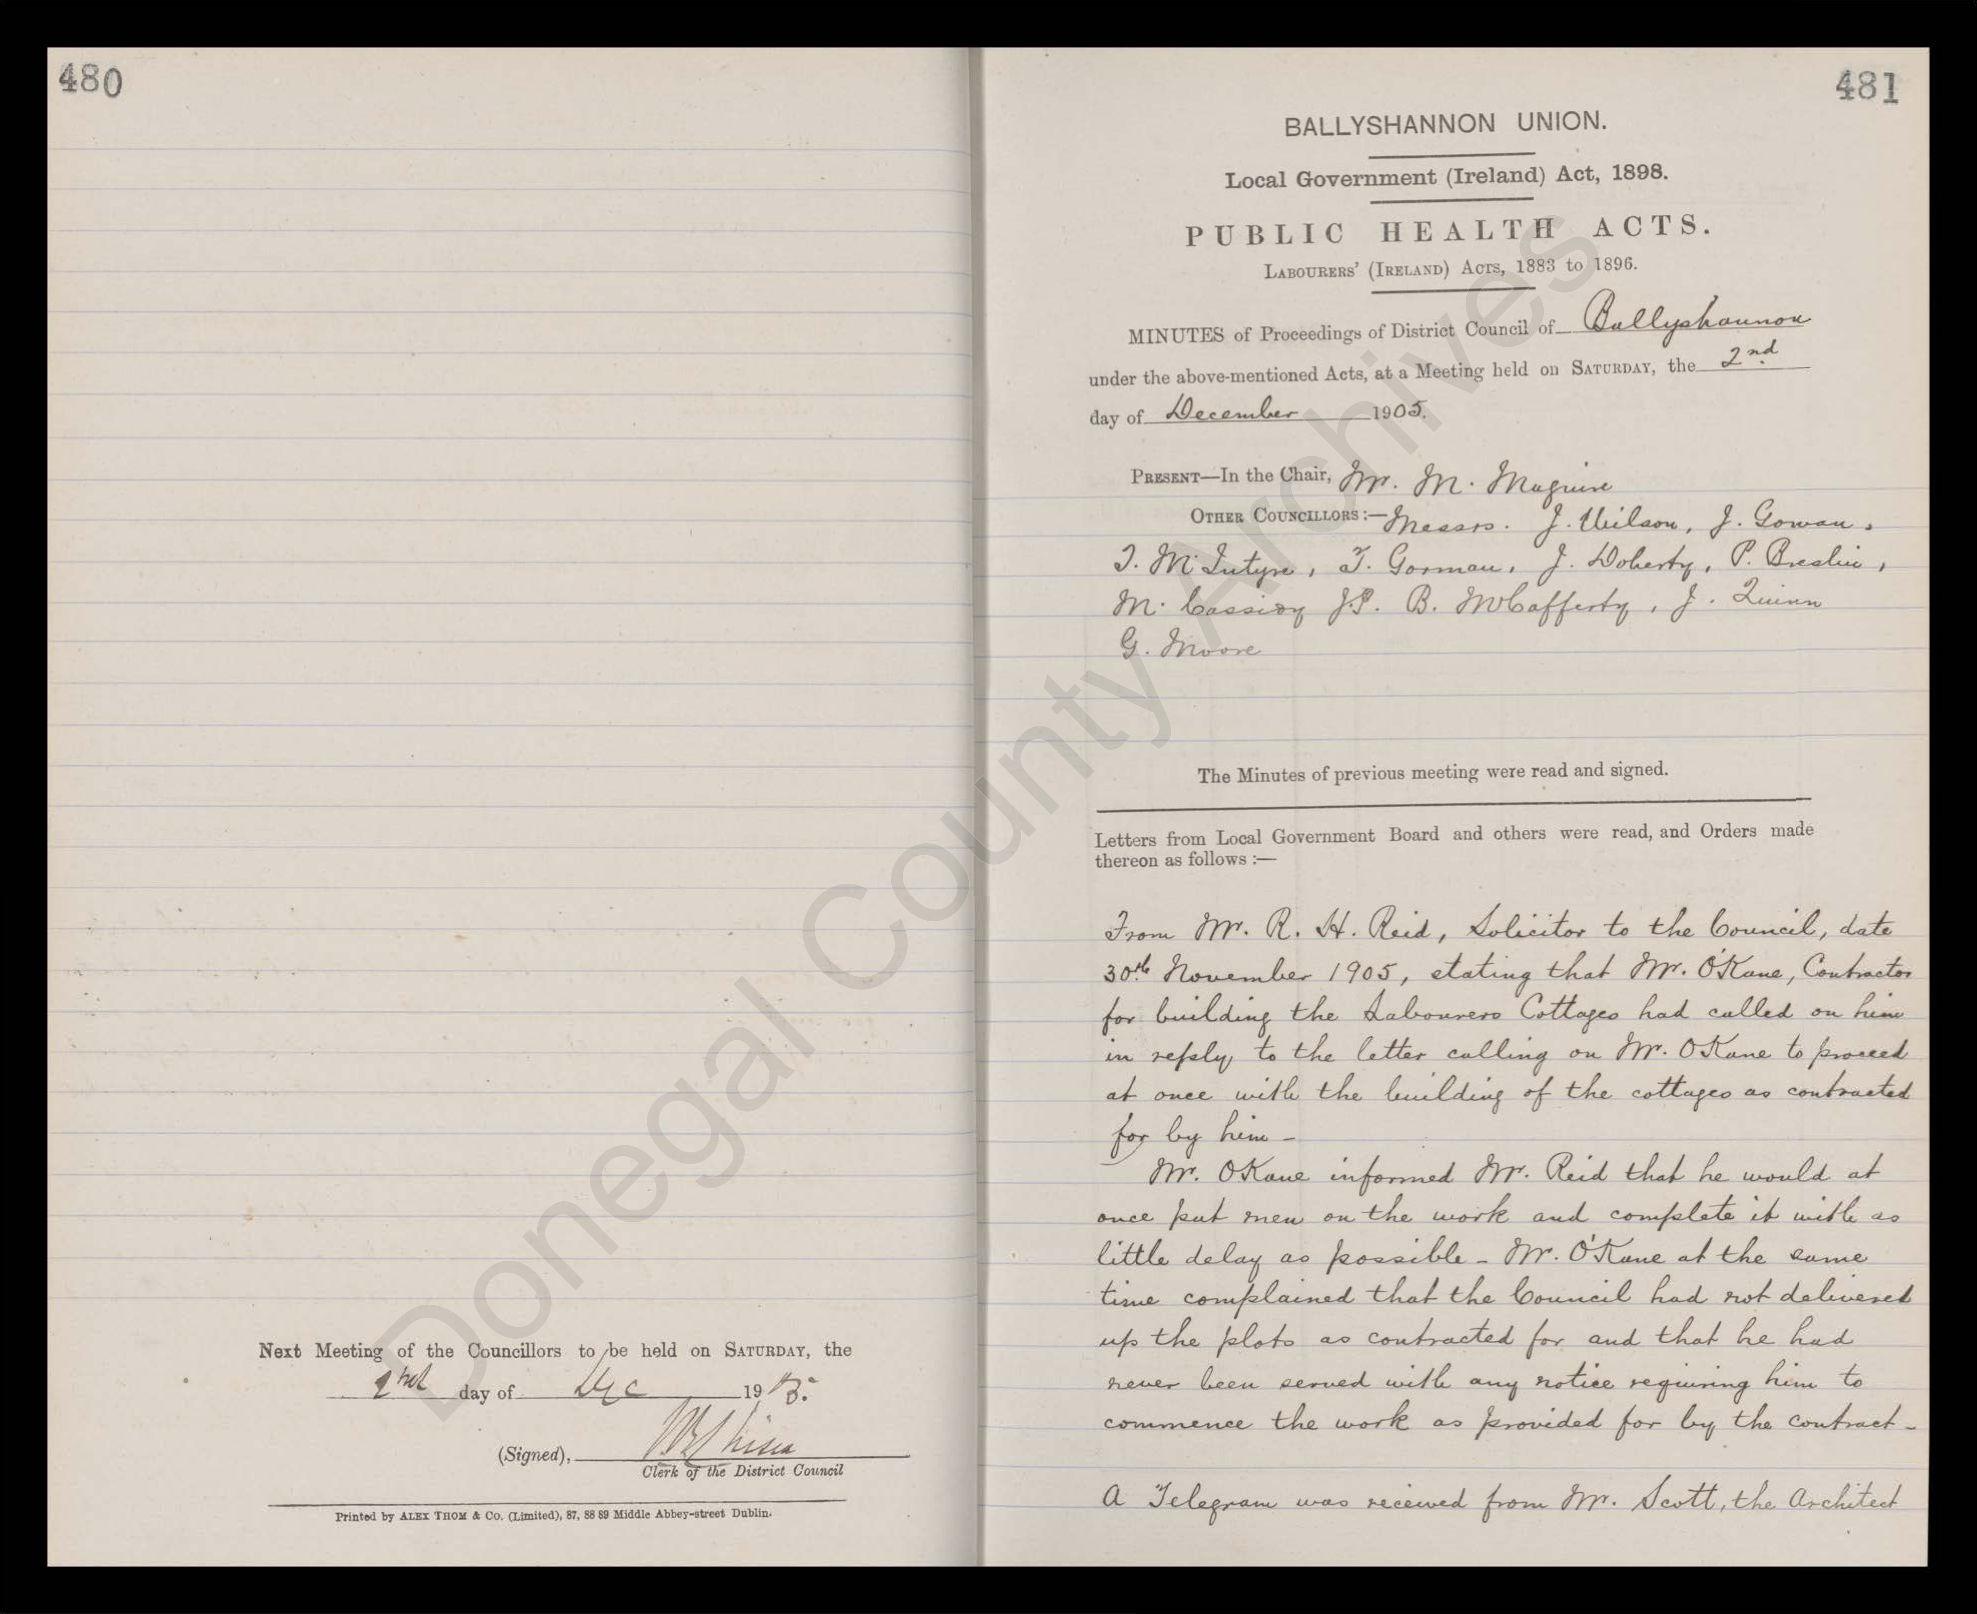 480
Next Meeting of the Councillors to be held on SATURDAY, the
2nd day of Dec 1905.
(Signed),
Clerk of the District Council
Printed by ALEX THOM & Co. (Limited), 87, 88 89 Middle Abbey-street Dublin.
481
BALLYSHANNON UNION.
Local Government (Ireland) Act, 1898.
PUBLIC HEALTH ACTS.
LABOURERS' (IRELAND) ACTS, 1883 to 1896.
MINUTES of Proceedings of District Council of Ballyshannon
under the above-mentioned Acts, at a Meeting held on SATURDAY, the 2nd
day of December 1905.
PRESENT—In the Chair, Mr. M. Maguire
OTHER COUNCILLORS:—Messrs. J. Wilson, J. Gowan,
T. McIntyre, T. Gorman, J. Doherty, P. Breslin,
M. Cassidy J.P. B. McCafferty, J. Quinn
G. Moore
The Minutes of previous meeting were read and signed.
Letters from Local Government Board and others were read, and Orders made
thereon as follows :—
From Mr. R. H. Reid, Solicitor to the Council, date
30th November 1905, stating that Mr. O'Kane, Contractor
for building the Labourers Cottages had called on him
in reply to the letter calling on Mr. OKane to proceed
at once with the building of the cottages as contracted
for by him -
Mr. OKane informed Mr. Reid that he would at
once put men on the work and complete it with as
little delay as possible - Mr. O'Kane at the same
time complained that the Council had not delivered
up the plots as contracted for and that he had
never been served with any notice requiring him to
commence the work as provided for by the contract -
A Telegram was received from Mr. Scott, the Architect
Donegal County Archives